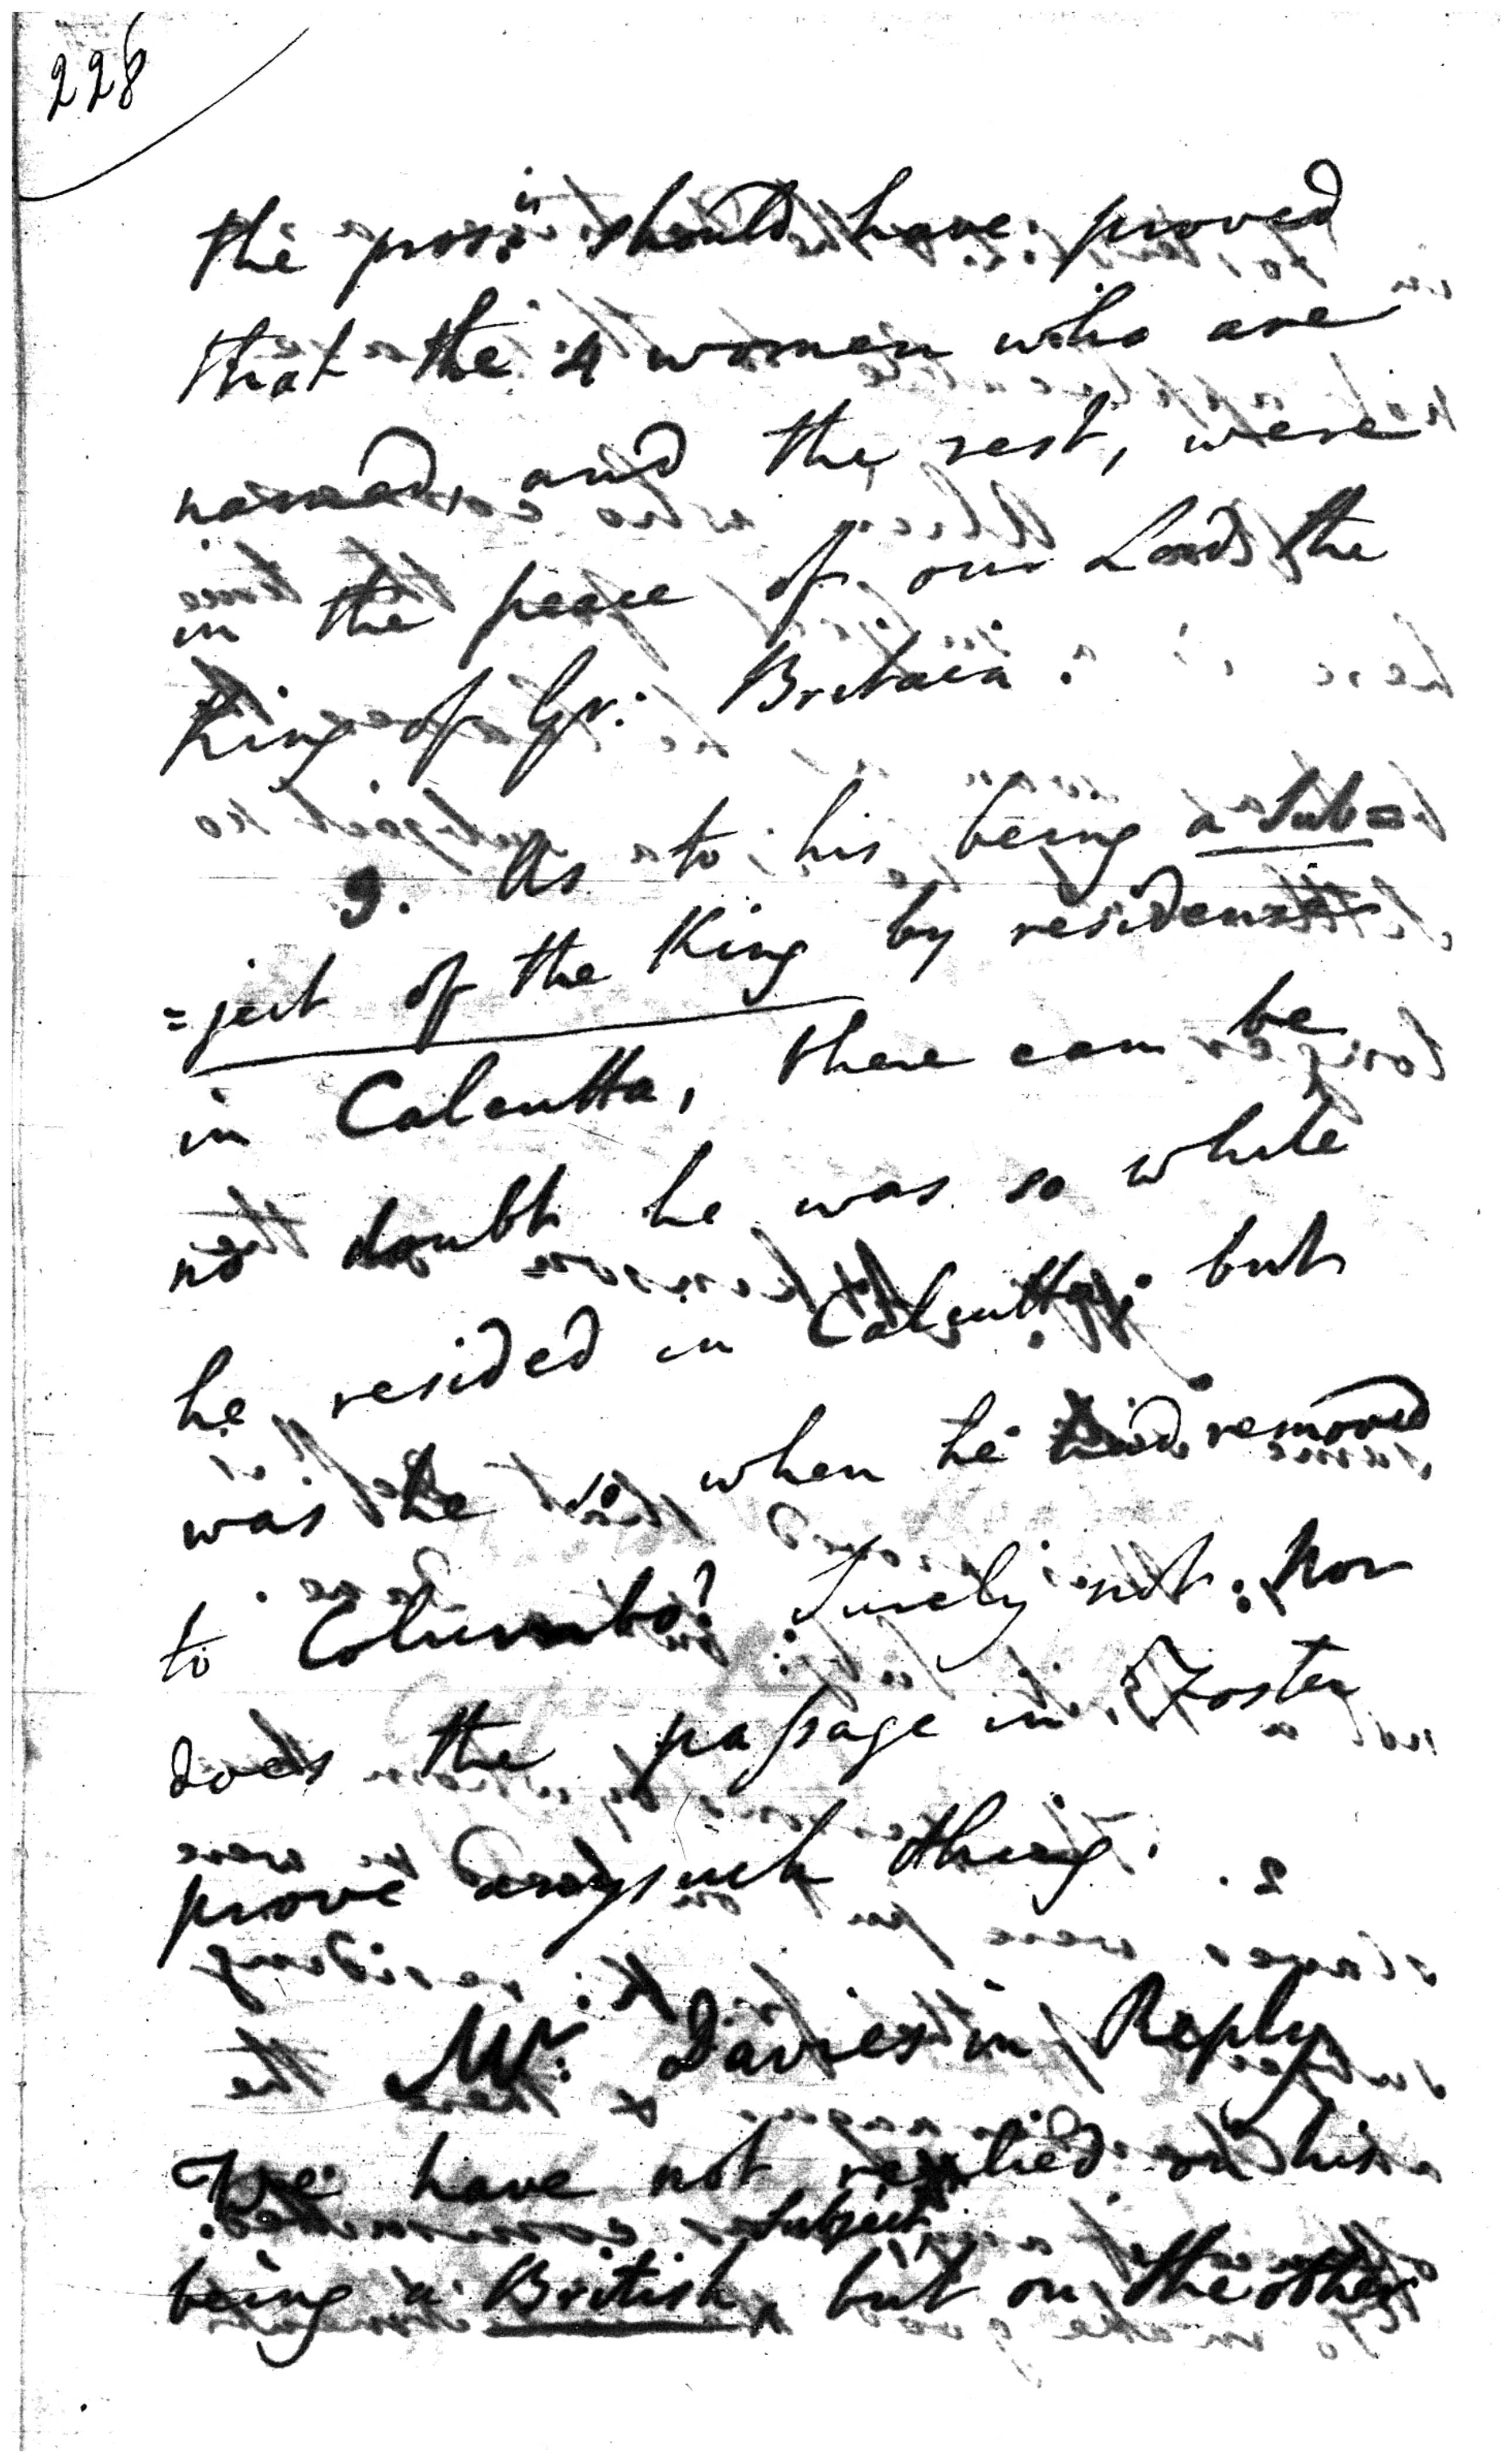 228
the pros:n should have proved
that the 4 women who are
named, and the rest, were
in the peace of our Lord the
King of Gr: Britain.
9. As to his being a Sub=
=ject of the King by residence
in Calcutta, there can be
no doubt he was so while
he resided in Calcutta; but
was he so when he had removed
to Columbo? Surely not. Nor
does the passage in Foster
prove any such thing.
Mr: Davies in Reply
We have not relied on his
being a British Subject, but on the other